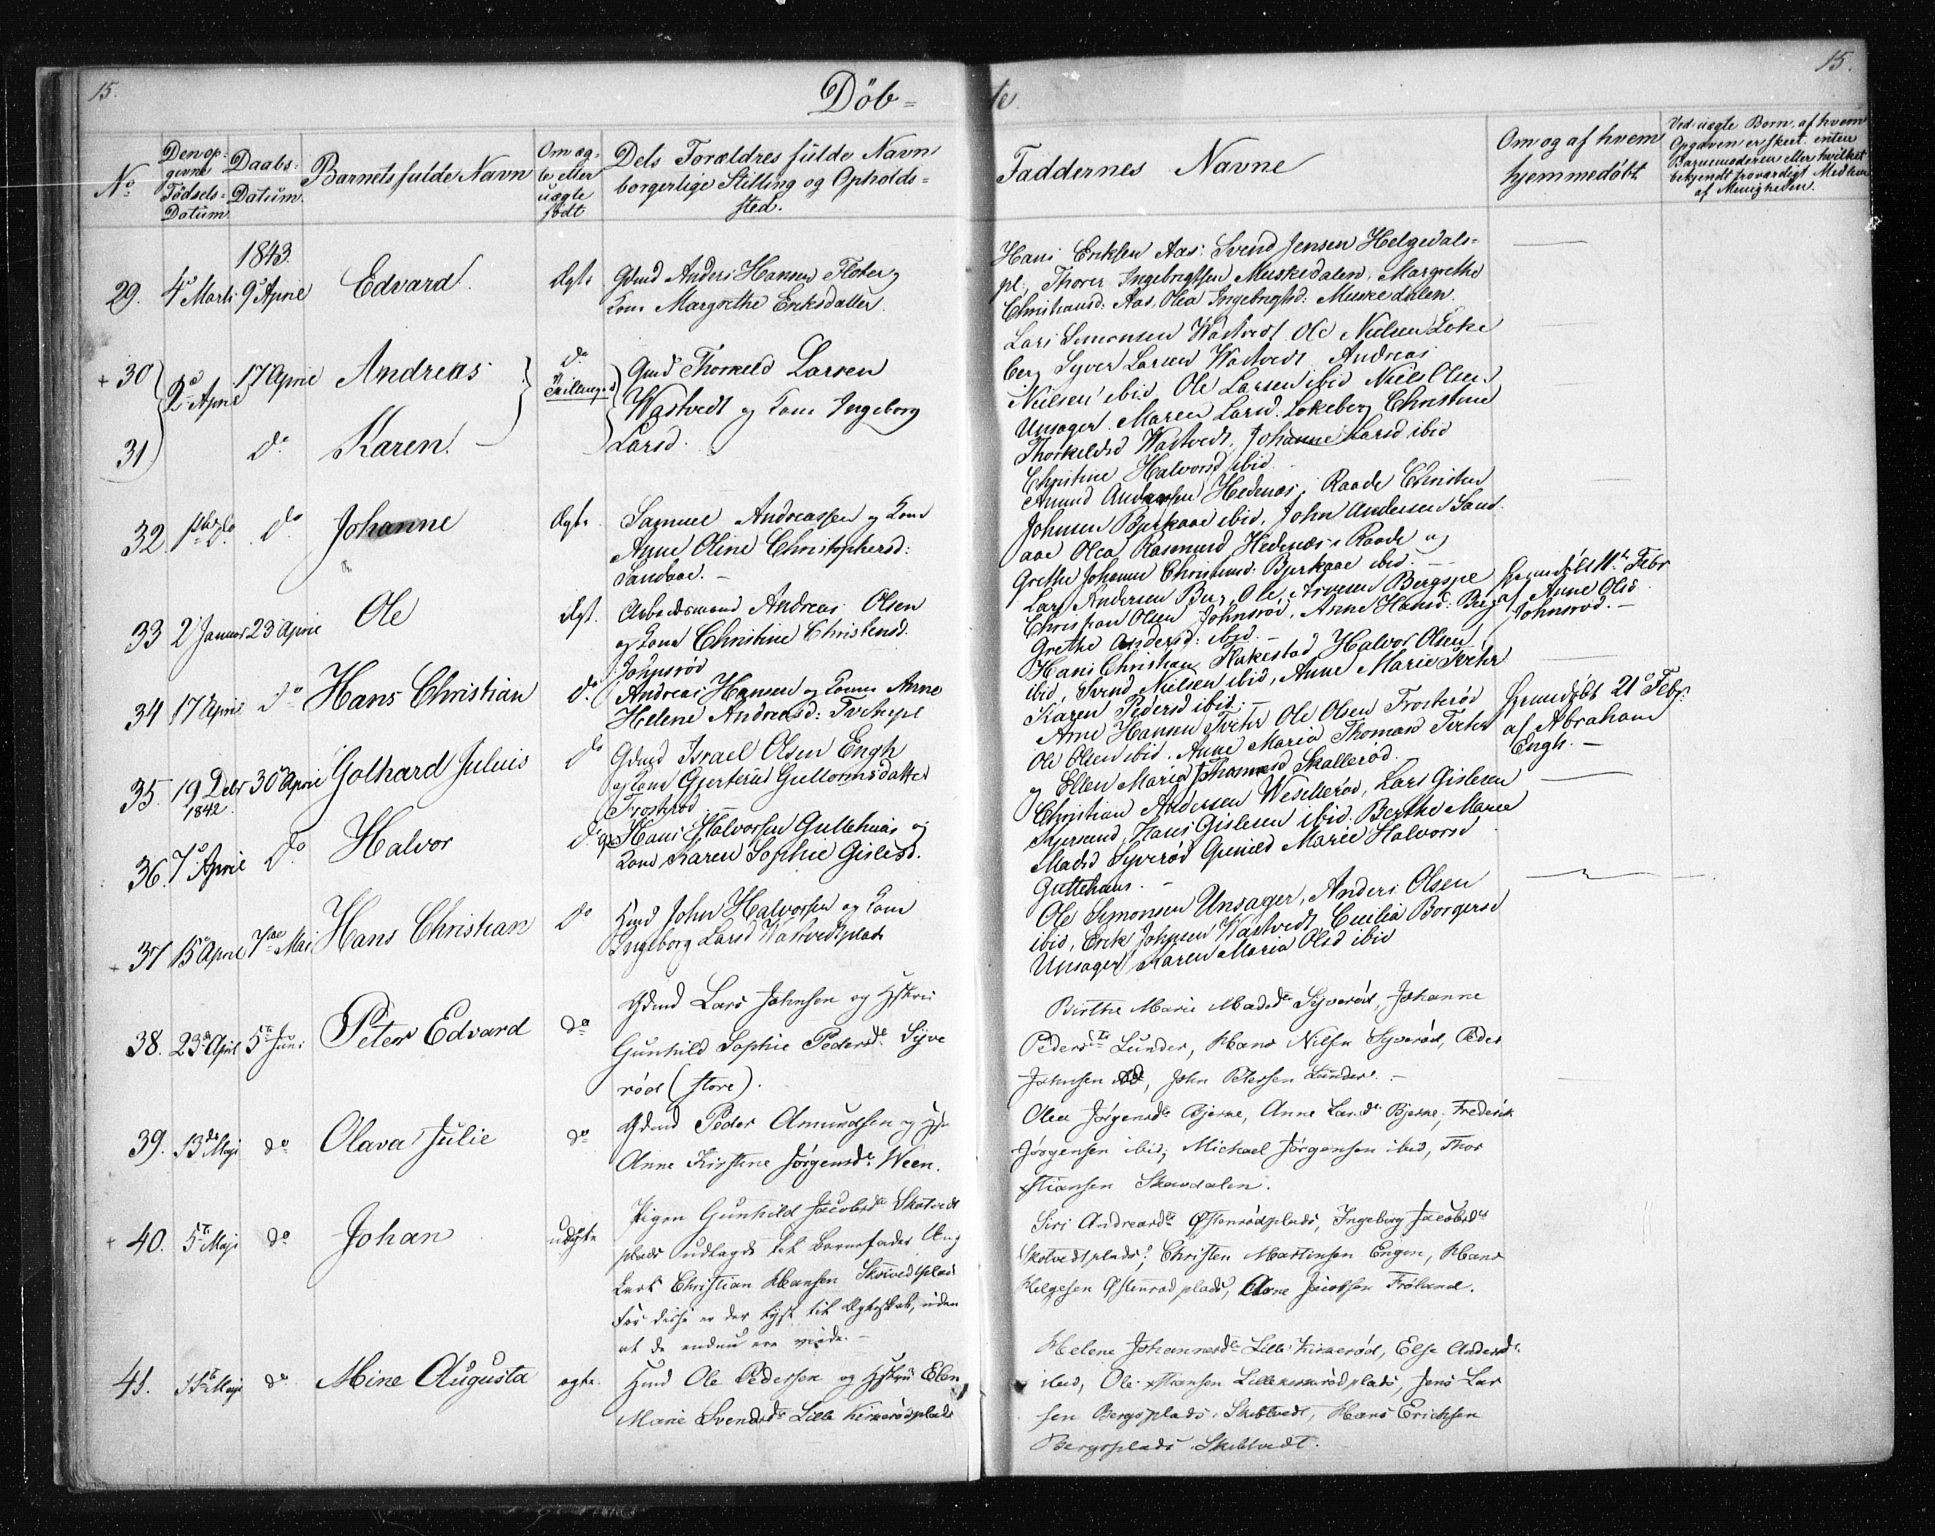 15.
Döb=
te.
15.
No.
Den op-
givne
Födsels-
Datum.
Daabs-
Datum.
Barnets fulde Navn
Om æg-
te eller
uægte
födt
Dets Forældres fulde Navn
borgerlige Stilling og Opholds-
sted.
Faddernes Navne
Om og af hvem
hjemmedøbt.
Ved uægte Börn, af hvem
Opgaven er skeet, enten
Barnemoderen eller hvilket
bekjendt troværdigt Medlem
af Menigheden.
1843.
29. 4de Marts 9de April Edvard. Ægte Gdmd Anders Hansen Floter og
Kone Margrethe Eriksdatter.
Hans Eriksen Aas. Svend Jensen Helgedals-
pl. Thorer Ingebrigtsen Muskedalen. Margrethe
Christiansd: Aas, Olea Ingebrigtsd: Muskedalen.
+ 30 2de April 17 April Andreas do Tvillinger Gmd Thorkild Larsen
31 do Karen. Wastvedt og Kone Ingeborg
Larsd.
Lars Simensen Wastvedt Ole Nielsen Loke
berg Syver Larsen Wastvedt, Andreas
Nielsen ibid Ole Larsen ibid Niels Olsen
Unsager. Maren Larsd. Lokeberg Christine
Thorkildsd Wastvedt, Johanne Larsd ibid
Christine Halvorsd ibid.
32 do. Johanne Ægte. Samuel Andreassen og Kone
Anne Oline Christophersd:
Sandaae.
Amund Andersen Hedenæs, Raade Christen
Johnsen Bjerkaae ibid, John Andersen Sand
aae Olea Rasmusd Hedenæs, Raade og
Grethe Johanne Christensd: Bjerkaae ibid.
33 2 Januar 23 April Ole Ægt. Arbeidsmand Andreas Olsen
og Kone Christine Christensd.
Johnsrød
Lars Andersen Berg, Ole Iversen Bergspl
Christian Olsen Johnsrød, Anne Hansd: Berg
Grethe Andersd: ibid.
hjemdøbt 11te Febr
af Anne Olsd.
Johnsrød.
34 17 April do Hans Christian do. Andreas Hansen og Kone Anne
Helene Andreasd: Tvetepl
Hans Christian Rakestad Halvor Olsen
ibid, Svend Nielsen ibid, Anne Marie Tveter
Karen Pedersd ibid.
35. 19 Debr 1842. 30 April Gothard Julius do Gdmd Israel Olsen Engh
og Kone Gjertrud Guttormsdatter
Frosterød.
Arne Hansen Tveter Ole Olsen Frosterød
Ole Olsen ibid. Anne Maria Thomasd Tveter
og Ellen Maria Thomasd Skallerød.
hjemdøbt 21de Febr.
af Abraham
Engh.
36. 7de April do. Halvor do. Hans Halvorsen Guttehuus og
Kone Karen Sophie Gislesd.
Christian Andersen Wesellerød, Lars Gislesen
Hans Gislesen ibid. Berthe Marie
Madsd Syverød Gunild Marie Halvorsd
Guttehuus.
+ 37 15de April 7de Mai Hans Christian do Hmd John Halvorsen og Kone
Ingeborg Larsd Wastvedtplads
Ole Symonsen Unsager, Anders Olsen
ibid, Erik Johnsen Wastvedt Cecilia Borgersd
Unsager, Karen Maria Olsd ibid
38. 23de April 5te Juni Peter Edvard do Gdmd Lars Johnsen og Hstru
Gunhild Sophie Pedersdr. Syve
rød (store).
Birthe Marie Madsdr Syverød, Johanne
Pedersdr Lunder, Hans Nilsen Syverød, Peder
Johnsen ibd, John Petersen Lunder.
39. 13de Maji do Olava Julie do Gdmd Peder Amundsen og Hst
Anne Kirstine Jörgensdr Ween.
Olea Jörgensdr Bjerke, Anne Larsdr Bjerke, Frederik
Jörgensen ibid, Michael Jörgensen ibid, Thor
Stiansen Skavdalen.
+ 40. 5te Maji do Johan uægte Pigen Gunhild Jacobsdr Skotvedt
plads udlagde til Barnefader Ung
karl Christian Hansen Skotvedtplads
For disse er der lyst til Ægteskab, uden
at de endnu ere viede.
Siri Andreasdr Østenrødplads, Ingeborg Jacobsdr
Skotvedtplads, Christen Martinsen Engen, Hans
Helgesen Østenrødplads, Arne Jacobsen Frøland.
41. 11te Maji do Mine Augusta ægte. Hmd Ole Pedersen og Hstru Elen
Marie Svendsdr Lille Kirkerødplads
Helene Johannesdr Lille Kirkerød, Else Andersdr.
ibid, Ole Stiansen Lillekirkerødplads, Jens Lar
sen Bergsplads, Skibtvedt, Hans Erichsen
Bergsplads Skibtvedt.